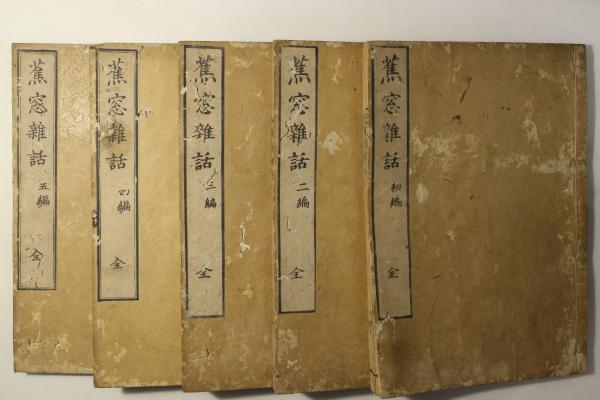 蕉窓雑話 初編 全
蕉窓雑話 二編 全
蕉窓雑話 三編 全
蕉窓雑話 四編 全
蕉窓雑話 五編 全